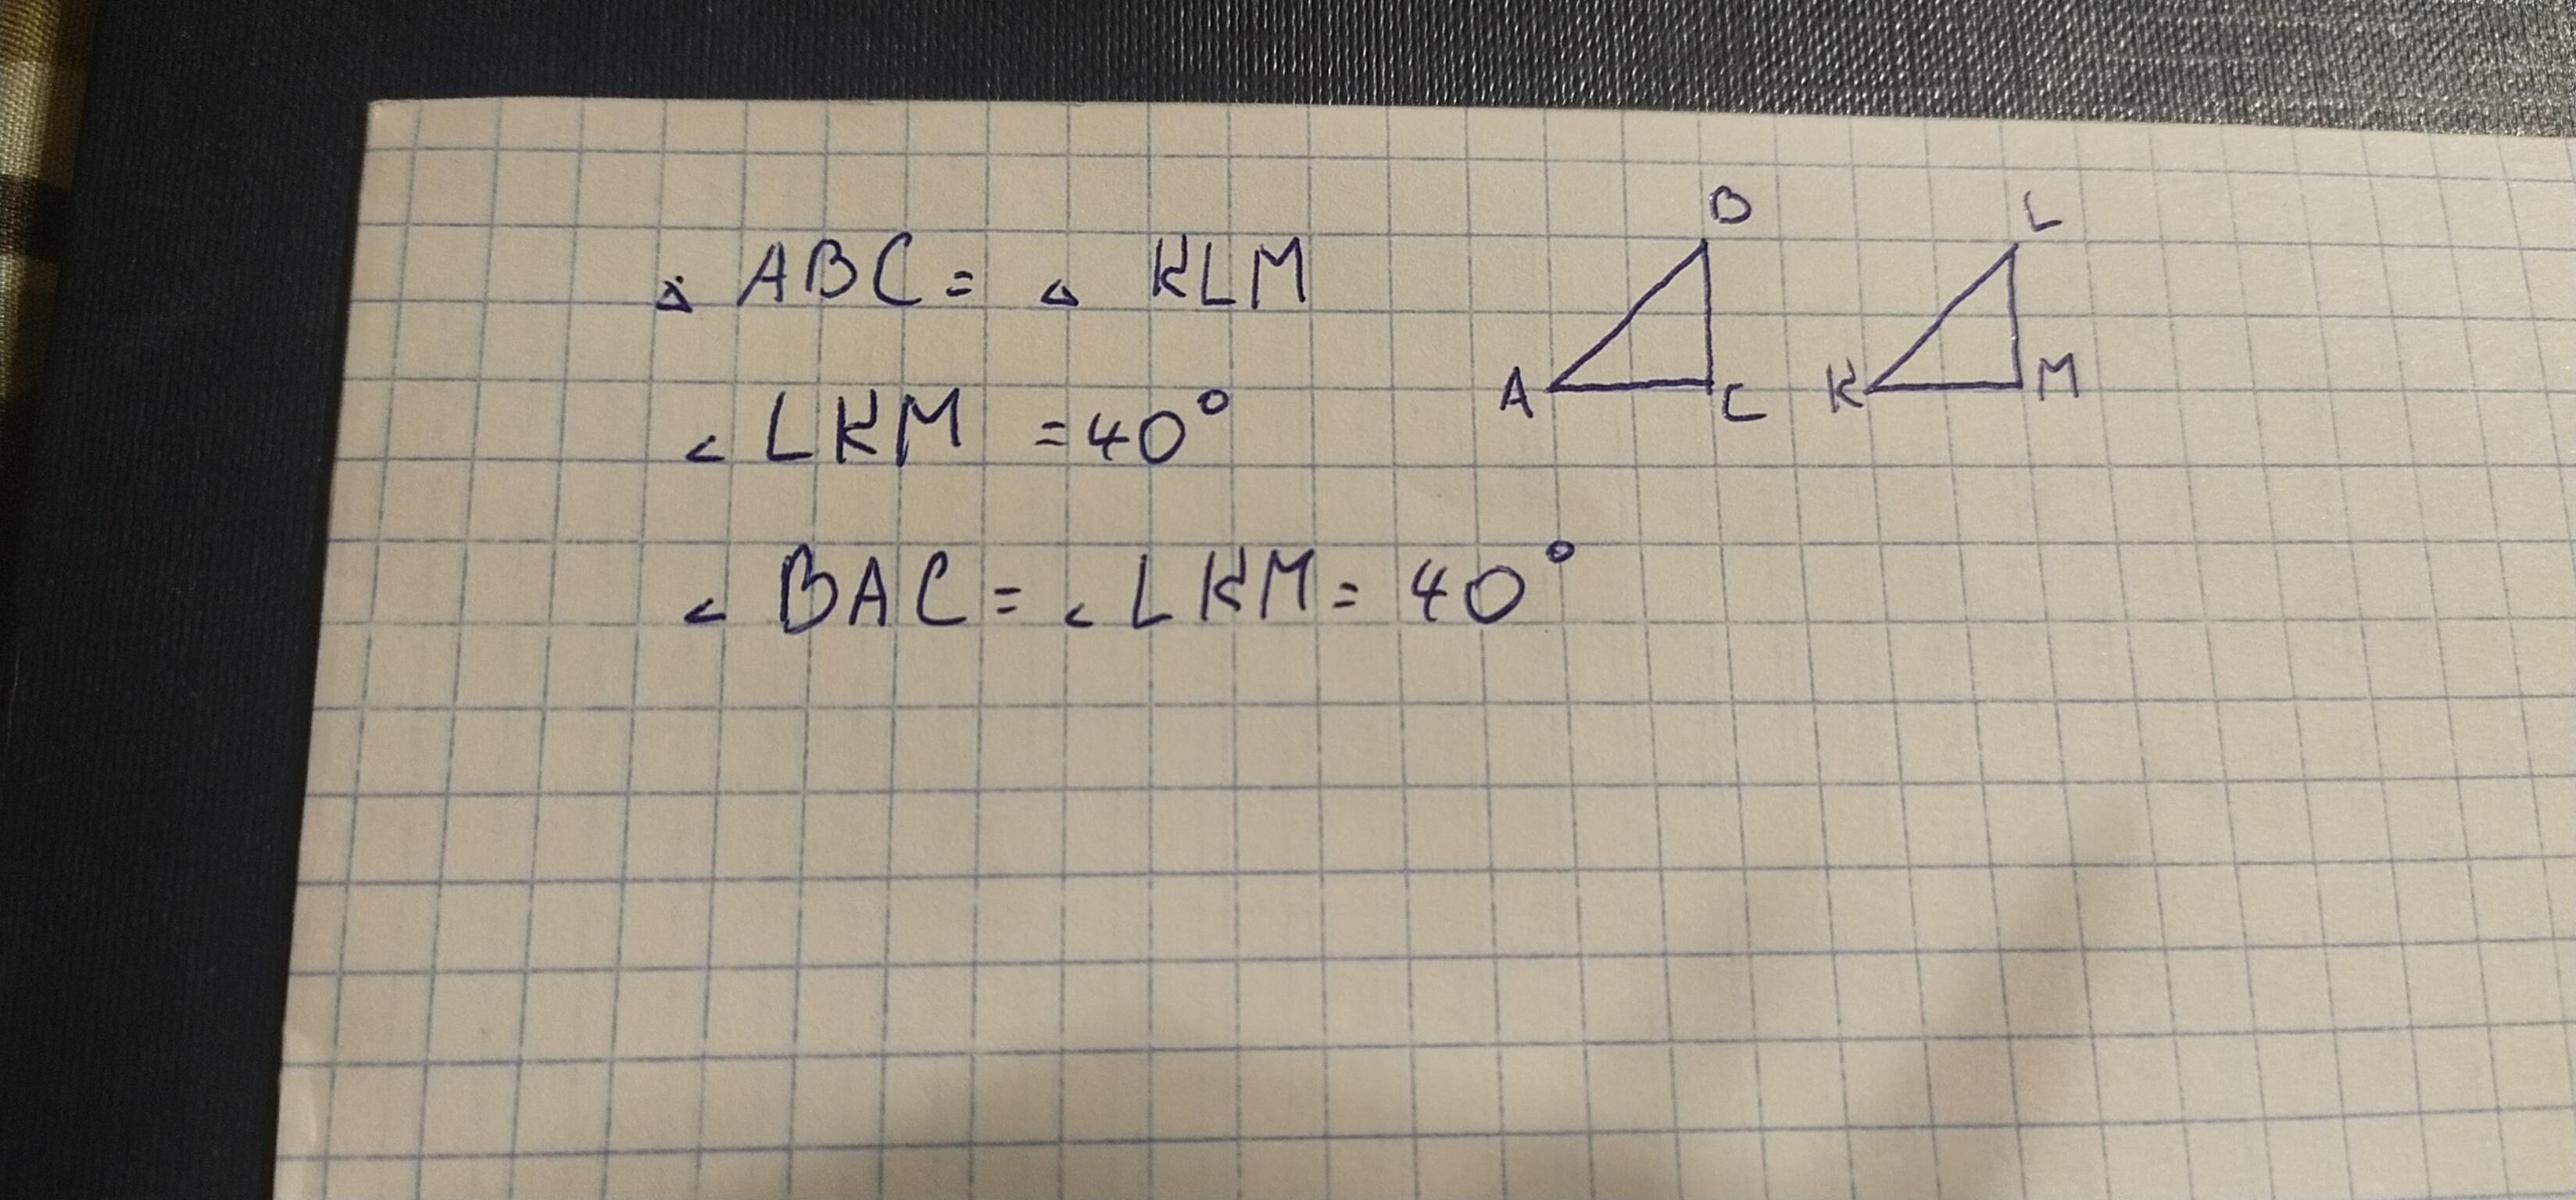 △ ABC = △ KLM
∠ LKM = 40°
∠ BAC = ∠ LKM = 40°
B
A
C
L
K
M